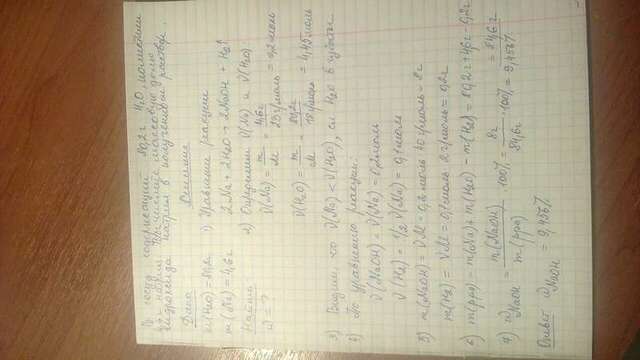 В сосуд содержащий 80,2 г H₂O, поместили
4,6 г натрия. Вычислите массовую долю
гидроксида натрия в полученном растворе.
Дано Решение
m(H₂O) = 80,2 г 1) Уравнение реакции
m(Na) = 4,6 г 2Na + 2H₂O → 2NaOH + H₂↑
Найти 2) Определим ν(Na) и ν(H₂O)
ω - ? ν(Na) = m/M = 4,6 г / 23 г/моль = 0,2 моль
ν(H₂O) = m/M = 80,2 / 18 г/моль = 4,45 моль
3) Видим, что ν(Na) < ν(H₂O), сл. H₂O в избытке
4) По уравнению реакции:
ν(NaOH) = ν(Na) = 0,2 моль
ν(H₂) = 1/2 ν(Na) = 0,1 моль
5) m(NaOH) = νM = 0,2 моль · 40 г/моль = 8 г
m(H₂) = νM = 0,1 моль · 2 г/моль = 0,2 г
6) m(рра) = m(Na) + m(H₂O) - m(H₂) = 80,2 г + 4,6 г - 0,2 г = 84,6 г
7) ω NaOH = m(NaOH) / m(рра) · 100% = 8 г / 84,6 г · 100% = 9,456%
Ответ ω NaOH = 9,456%